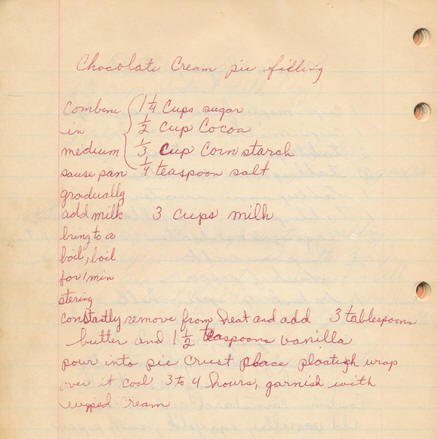 Chocolate Cream pie filling
Combine 1 1/4 Cups sugar
in 1/2 cup Cocoa
medium 1/3 cup Corn starch
sause pan 1/4 teaspoon salt
gradually
add milk 3 cups milk
bring to a
boil, boil
for 1 min
stering
constatly remove from heat and add 3 tablespoons
butter and 1 1/2 teaspoons vanilla
pour into pie Crust place plastigh wrap
over it cool 3 to 4 hours, garnish with
wuped cream